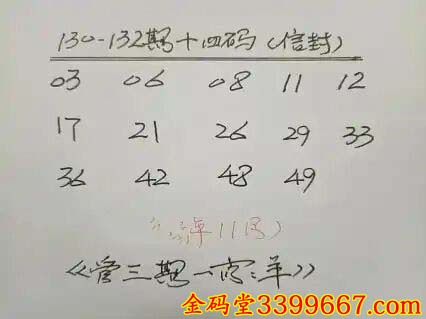 130-132期十四码（信封）
03 06 08 11 12
17 21 26 29 33
36 42 48 49
《管三期一宫:羊》
金码堂3399667.com